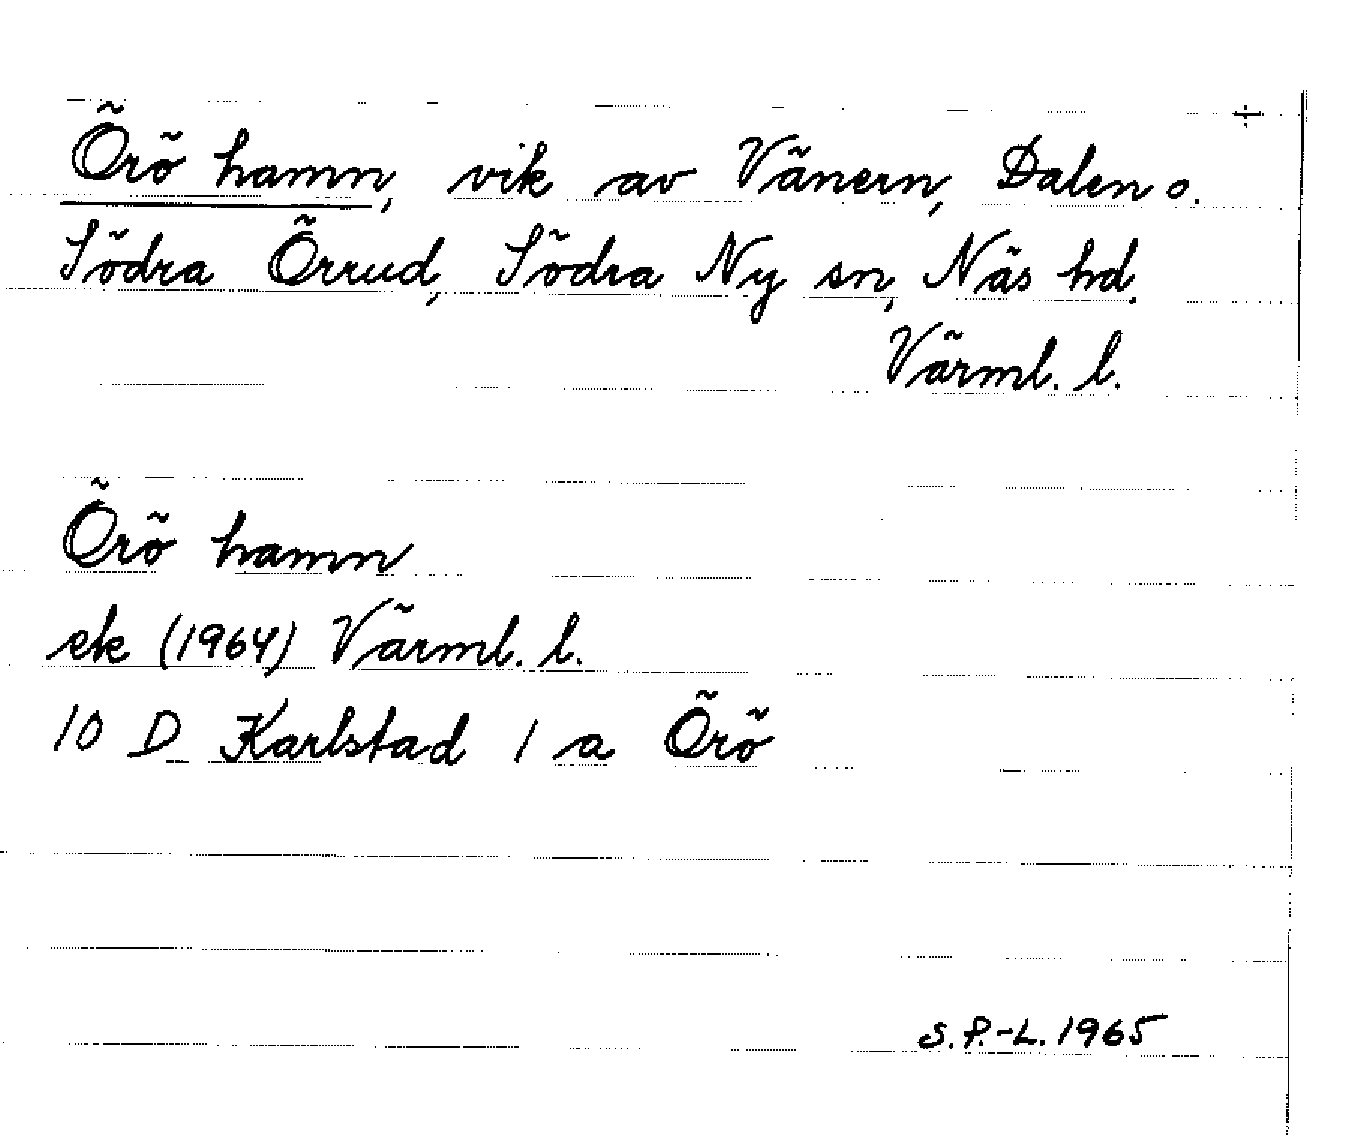 Örö hamn, vik av Vänern, Dalen o.
Södra Örrud, Södra Ny sn, Näs hd.
Värml. l.
Örö hamn
ek (1964) Värml. l.
10 D Karlstad 1 a Örö
S.P.-L. 1965